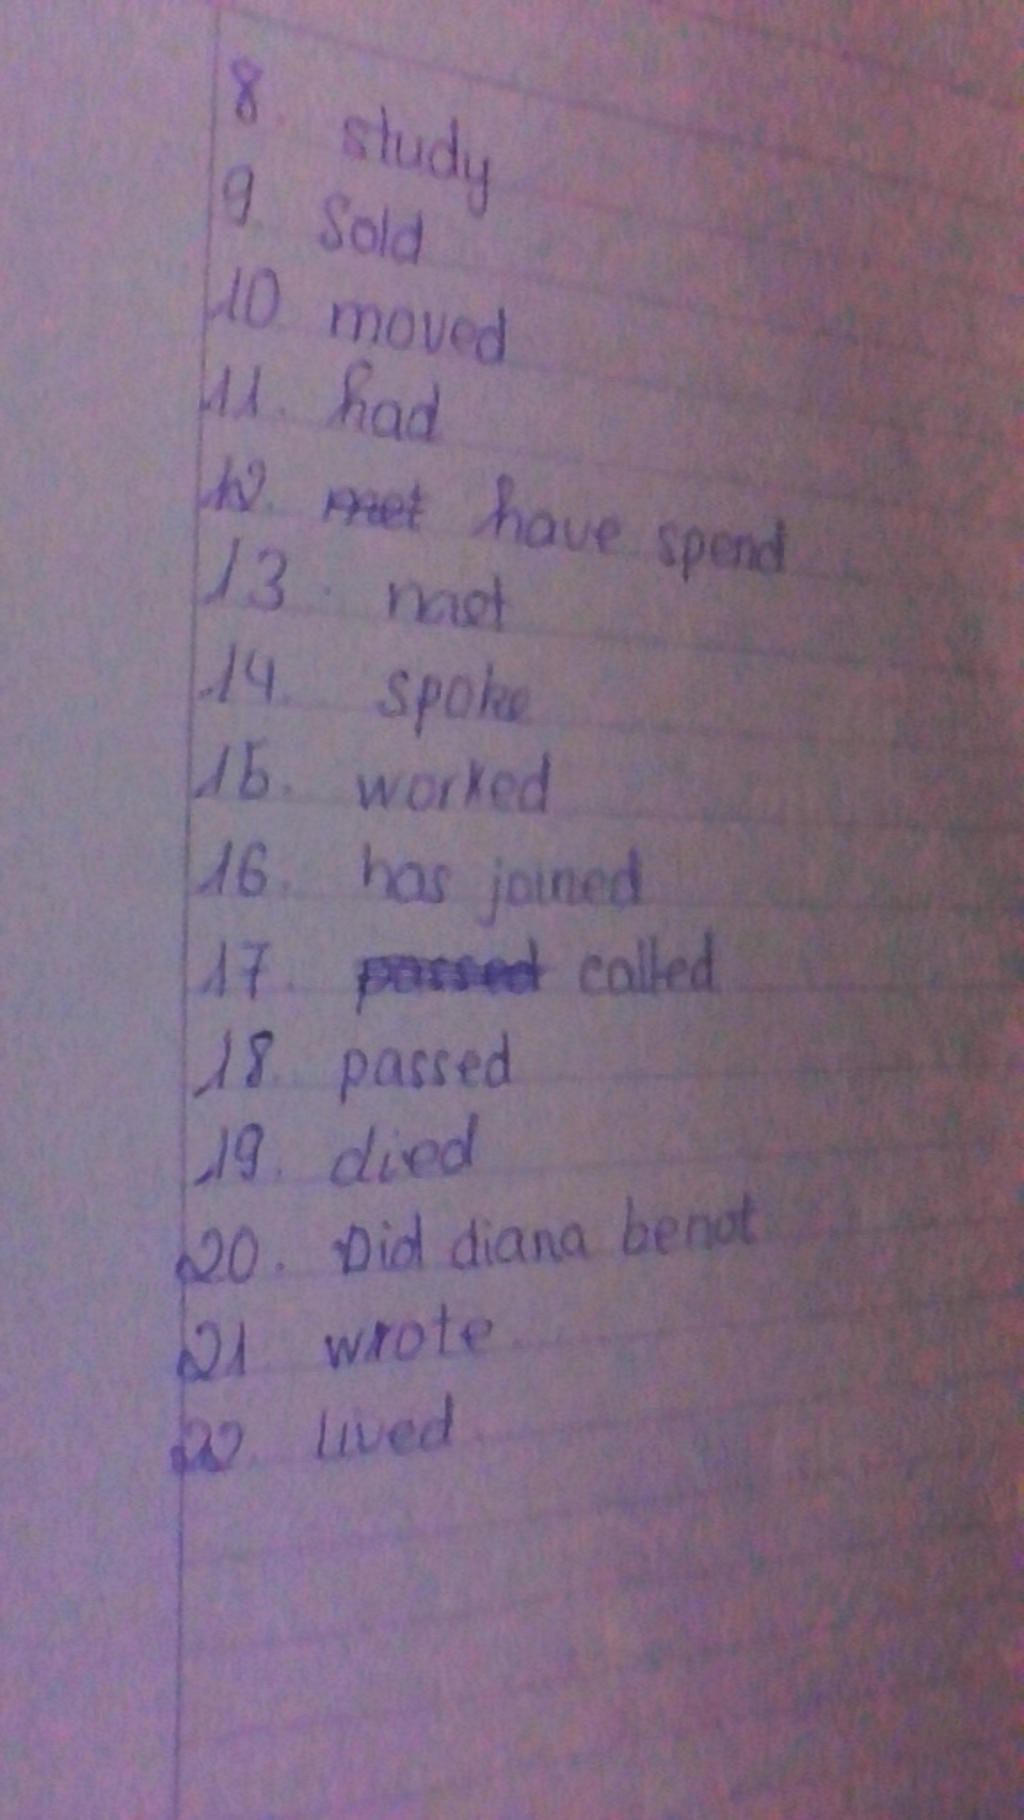 8. study
9. Sold
10 moved
11. had
12. met have spend
13.
14. spoke
15. worked
16. has joined
17. passed called
18. passed
19. died
20. Did diana
21 wrote
22. lived